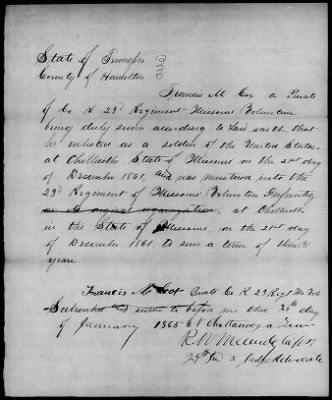 State of Tennessee
County of Hamilton
Francis M Cox a Private
of Co K 23d Regiment Missouri Volunteers
being duly sworn according to Law saith, that
he enlisted as a soldier of the United States
at Chillicothe State of Missouri on the 21st day
of December 1861, and was mustered into the
23d Regiment of Missouri Volunteer Infantry
at Chillicothe
in the State of Missouri, on the 21st day
of December 1861, to serve a term of three
years
Francis M Cox Private Co K 23 Regt Mo Vols
Subscribed and sworn to before me this 25th day
of January 1865 at Chattanooga Tenn